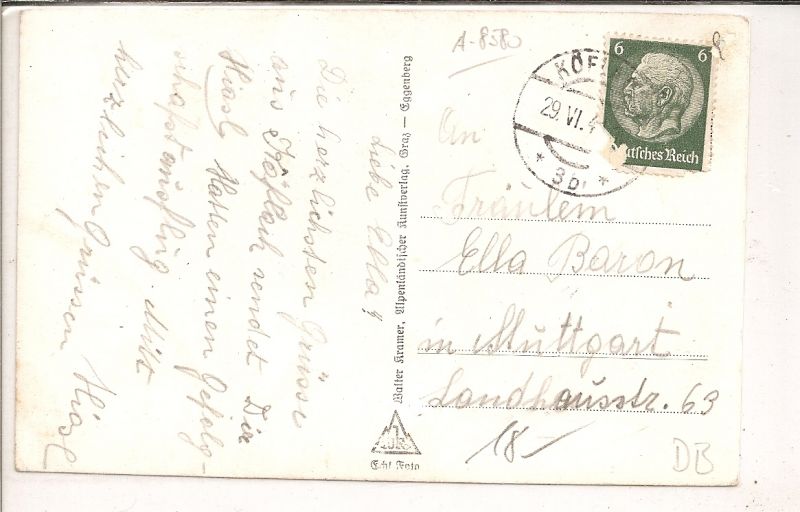 A-8580
KÖF
29. VI. 4
* 3b *
6 6
utsches Reich
Liebe Ella!
Die herzlichsten Grüsse
aus Köflach sendet Dir
Hiasl Hatten einen Gefolg-
schaftausflug Mit
herzlichen Grüssen Hiasl
Walter Kramer, Alpenländischer Kunstverlag, Graz — Eggenberg
Echt Foto
An
Fräulein
Ella Baron
in Stuttgart
Landhausstr. 63
18-
DB